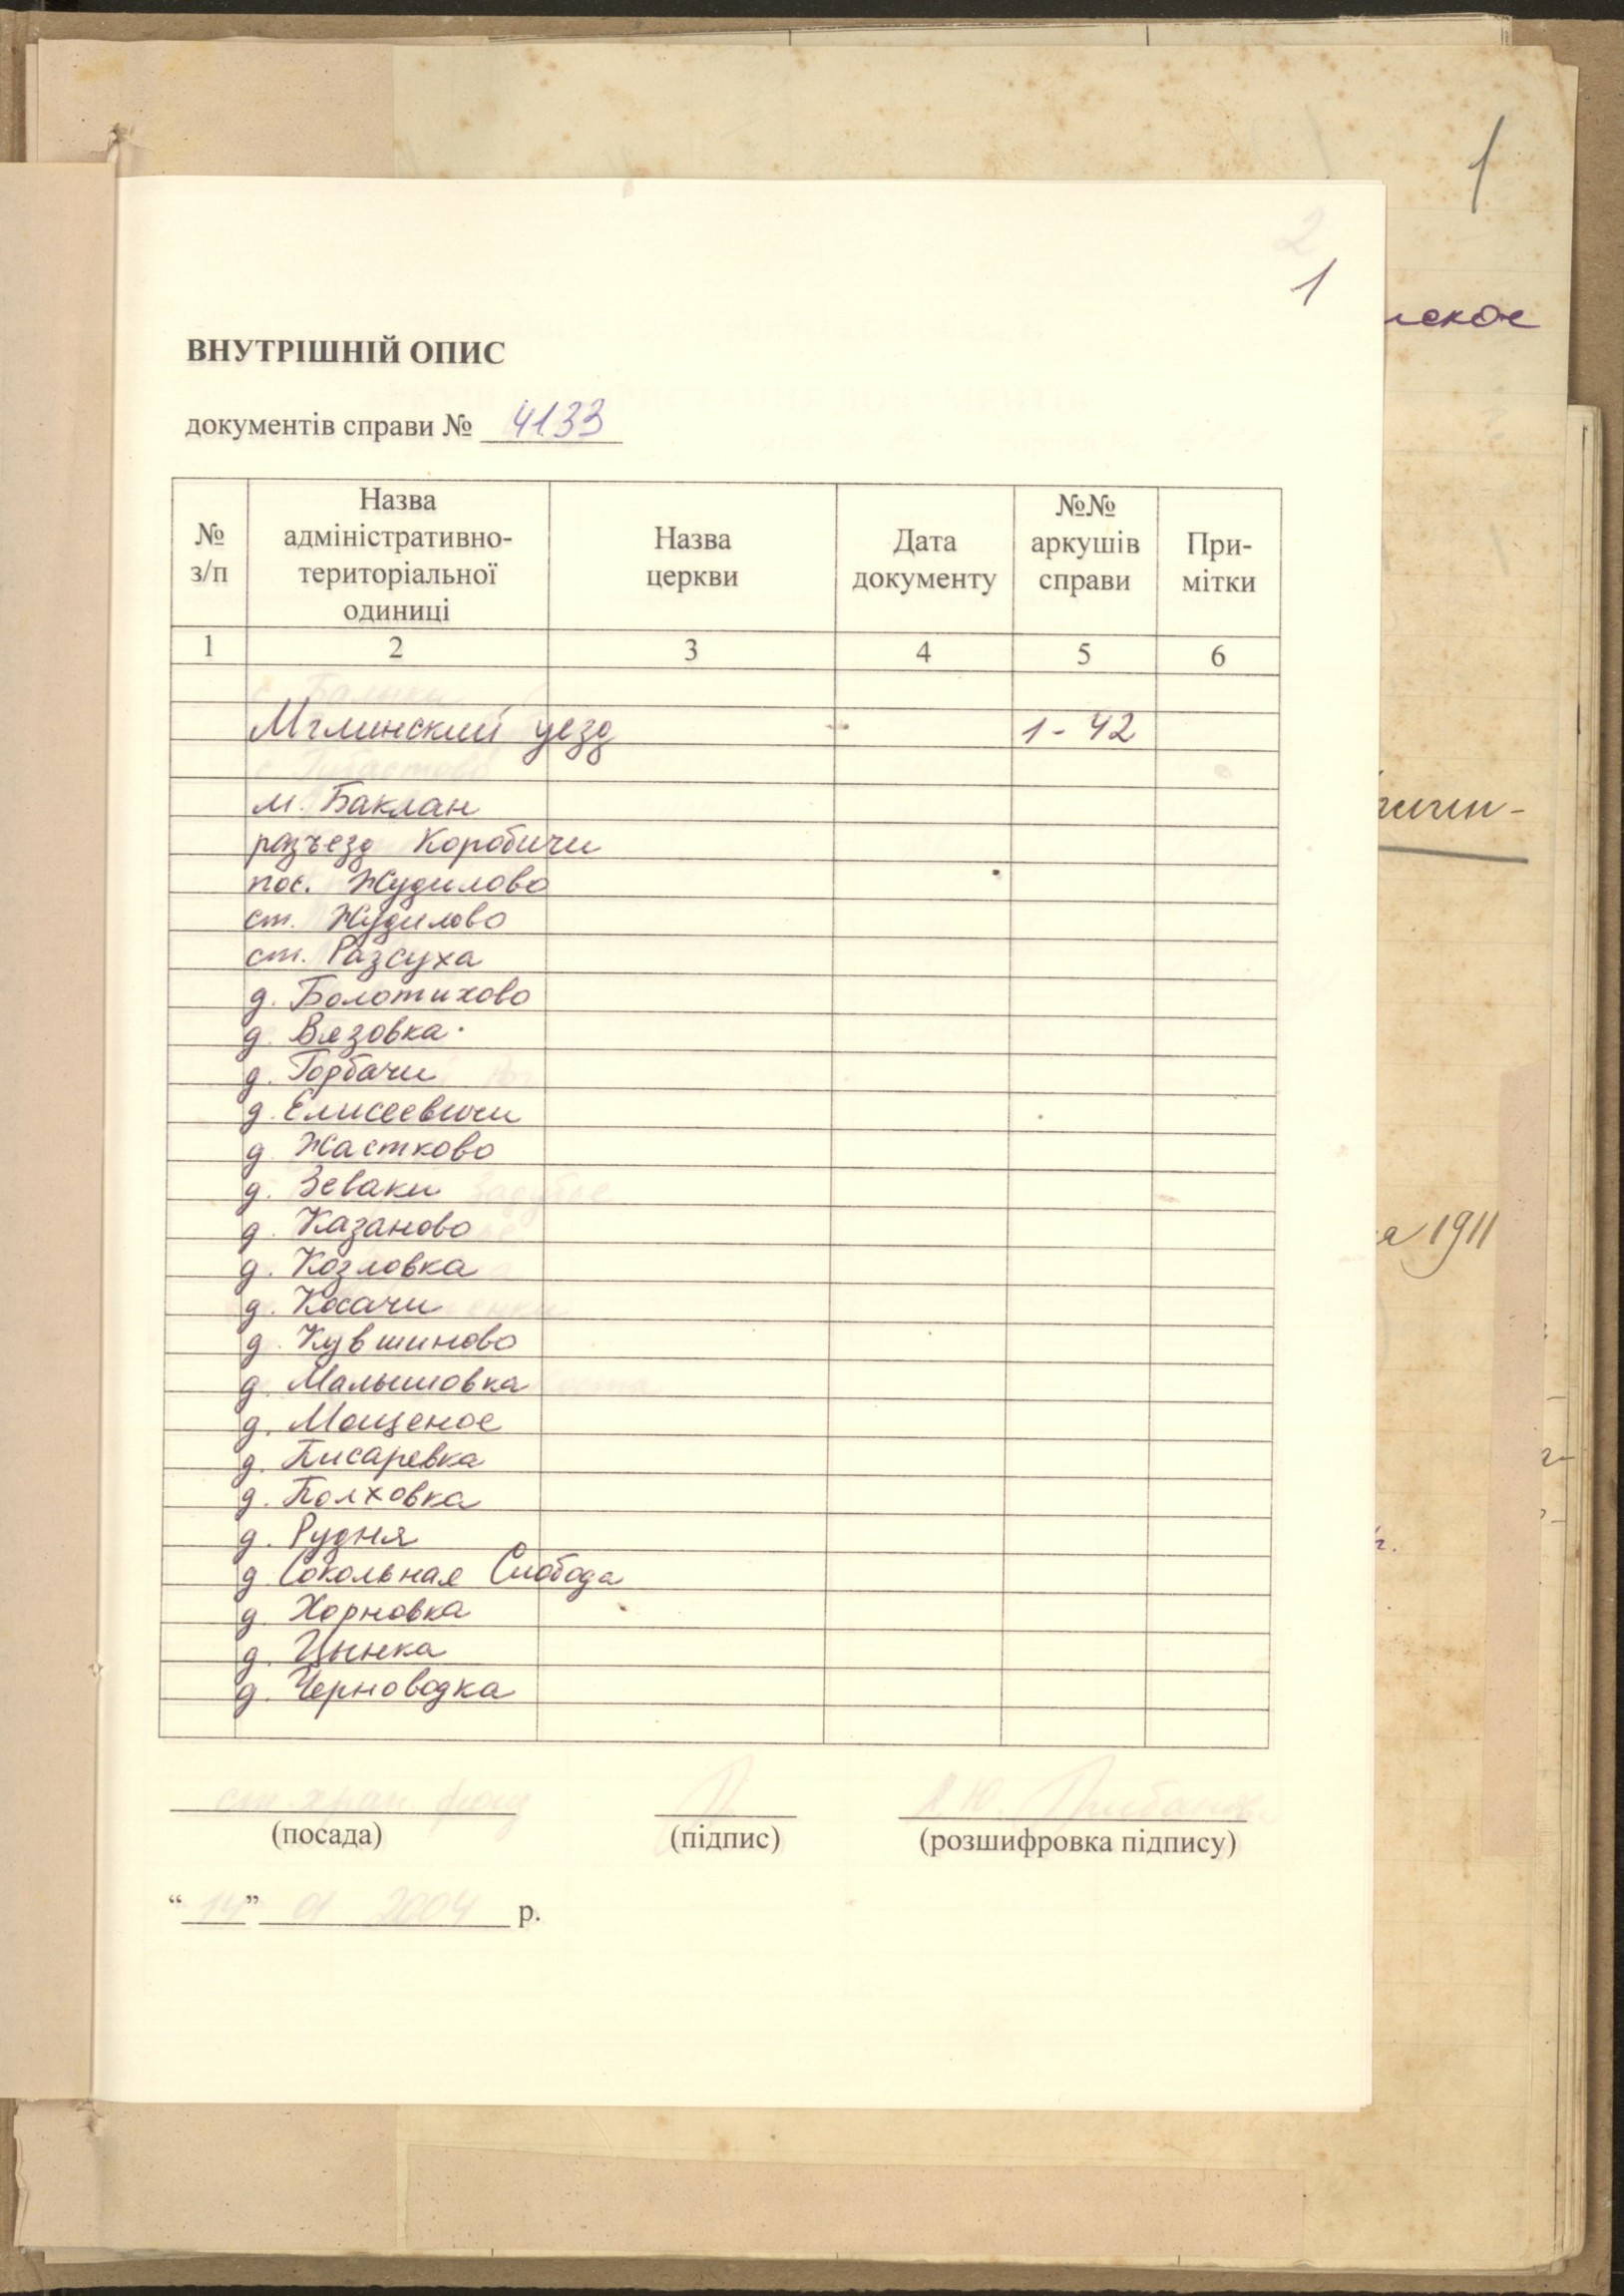 1
2
1
ское
ВНУТРІШНІЙ ОПИС
документів справи № 4133
№ з/п
Назва адміністративно-територіальної одиниці
Назва церкви
Дата документу
№№ аркушів справи
При-мітки
1 2 3 4 5 6
Мглинский уезд 1-42
м. Баклан
разъезд Коробичи
пос. Жудилово
ст. Жудилово
ст. Разсуха
д. Болотихово
д. Вязовка
д. Горбачи
д. Елисеевичи
д. Жастково
д. Зеваки
д. Казаново
д. Козловка
д. Косачи
д. Кувшиново
д. Малышовка
д. Мощеное
д. Писаревка
д. Полховка
д. Рудня
д. Сокольная Слобода
д. Хорновка
д. Цынка
д. Черноводка
а 1911
(посада) (підпис) (розшифровка підпису)
"14" 01 2004 р.